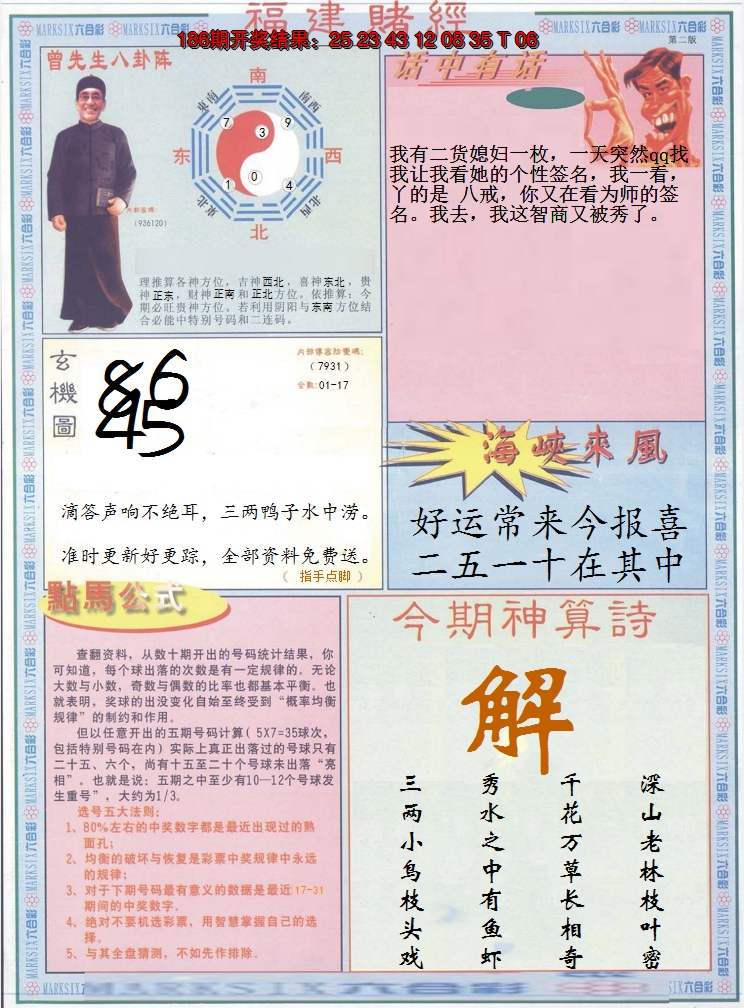 福建賭經
186期开奖结果：25 23 43 12 08 35 T 06
MARKSIX六合彩 MARKSIX六合彩 MARKSIX六合彩 MARKSIX六合彩
第二版
曾先生八卦阵
南
东南
西南
7
3
9
东
西
1
0
4
东北
西北
北
内部密碼:
(936120)
理推算各神方位，吉神西北，喜神东北，贵
神正东，财神正南和正北方位。依推算：今
期必旺贵神方位。若利用阴阳与东南方位结
合必能中特别号码和二连码。
话中有话
我有二货媳妇一枚，一天突然qq找
我让我看她的个性签名，我一看，
丫的是 八戒，你又在看为师的签
名。我去，我这智商又被秀了。
玄機圖
86
45
内部傳密防僞碼:
(7931)
合數:01-17
滴答声响不绝耳，三两鸭子水中涝。
准时更新好更踪，全部资料免费送。
（ 指手点脚 ）
海峽來風
好运常来今报喜
二五一十在其中
點馬公式
查翻资料，从数十期开出的号码统计结果，你
可知道，每个球出落的次数是有一定规律的。无论
大数与小数，奇数与偶数的比率也都基本平衡。也
就表明，奖球的出没变化自始至终受到“概率均衡
规律”的制约和作用。
但以任意开出的五期号码计算( 5X7=35球次，
包括特别号码在内) 实际上真正出落过的号球只有
二十五、六个，尚有十五至二十个号球未出落“亮
相”。也就是说：五期之中至少有10—12个号球发
生重号”，大约为1/3。
选号五大法则：
1、80%左右的中奖数字都是最近出现过的熟
面孔；
2、均衡的破坏与恢复是彩票中奖规律中永远
的规律；
3、对于下期号码最有意义的数据是最近17-31
期间的中奖数字。
4、绝对不要机选彩票，用智慧掌握自己的选
择。
5、与其全盘猜测，不如先作排除。
今期神算詩
解
深山老林枝叶密
千花万草长相奇
秀水之中有鱼虾
三两小鸟枝头戏